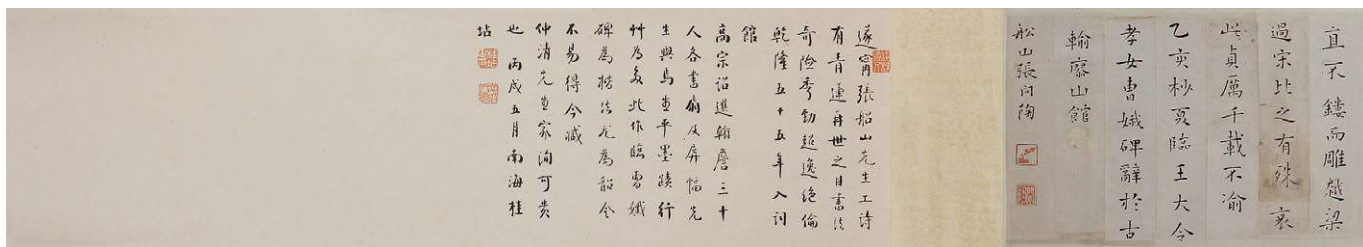 直不鏤而雕越梁
過宋比之有殊哀
此貞厲千載不渝
乙亥杪夏臨王大令
孝女曹娥碑辭於古
山館
船山張問陶
遂甯張船山先生工詩
有青蓮再世之目書法
奇險秀勁超逸絕倫
乾隆五十五年入詞
館
高宗詔選翰詹三十
人各書扇及屏幅先
生與焉生平墨蹟行
艸為多此作臨曹娥
碑為楷法尤為韶令
不易得今藏
仲清先生家洵可貴
也 丙戌五月南海桂
坫